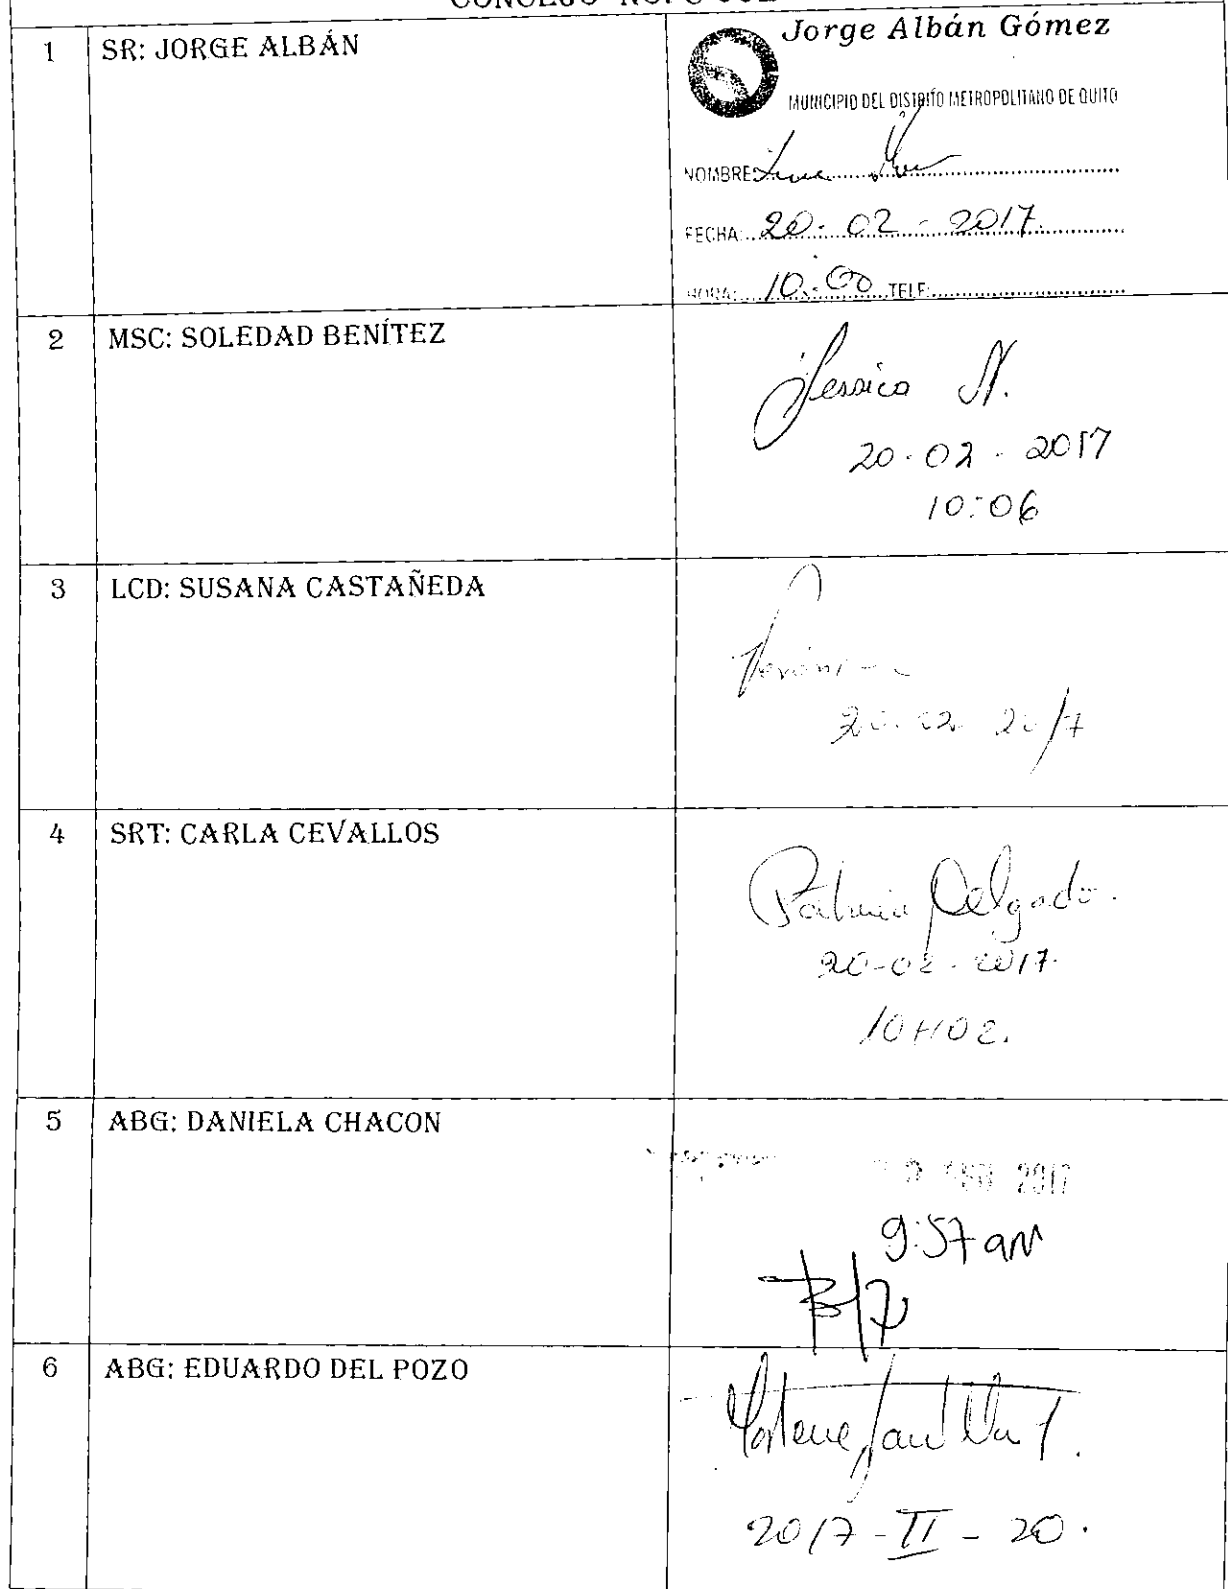 1 SR: JORGE ALBÁN
Jorge Albán Gómez
MUNICIPIO DEL DISTRITO METROPOLITANO DE QUITO
NOMBRE:
FECHA: 20-02-2017.
HORA: 10:00 TELF:
2 MSC: SOLEDAD BENÍTEZ
Jessica N.
20-02-2017
10:06
3 LCD: SUSANA CASTAÑEDA
20-02 2017
4 SRT: CARLA CEVALLOS
Delgado.
20-02-2017.
10H02.
5 ABG: DANIELA CHACON
2017
9:57 am
6 ABG: EDUARDO DEL POZO
2017-II-20.